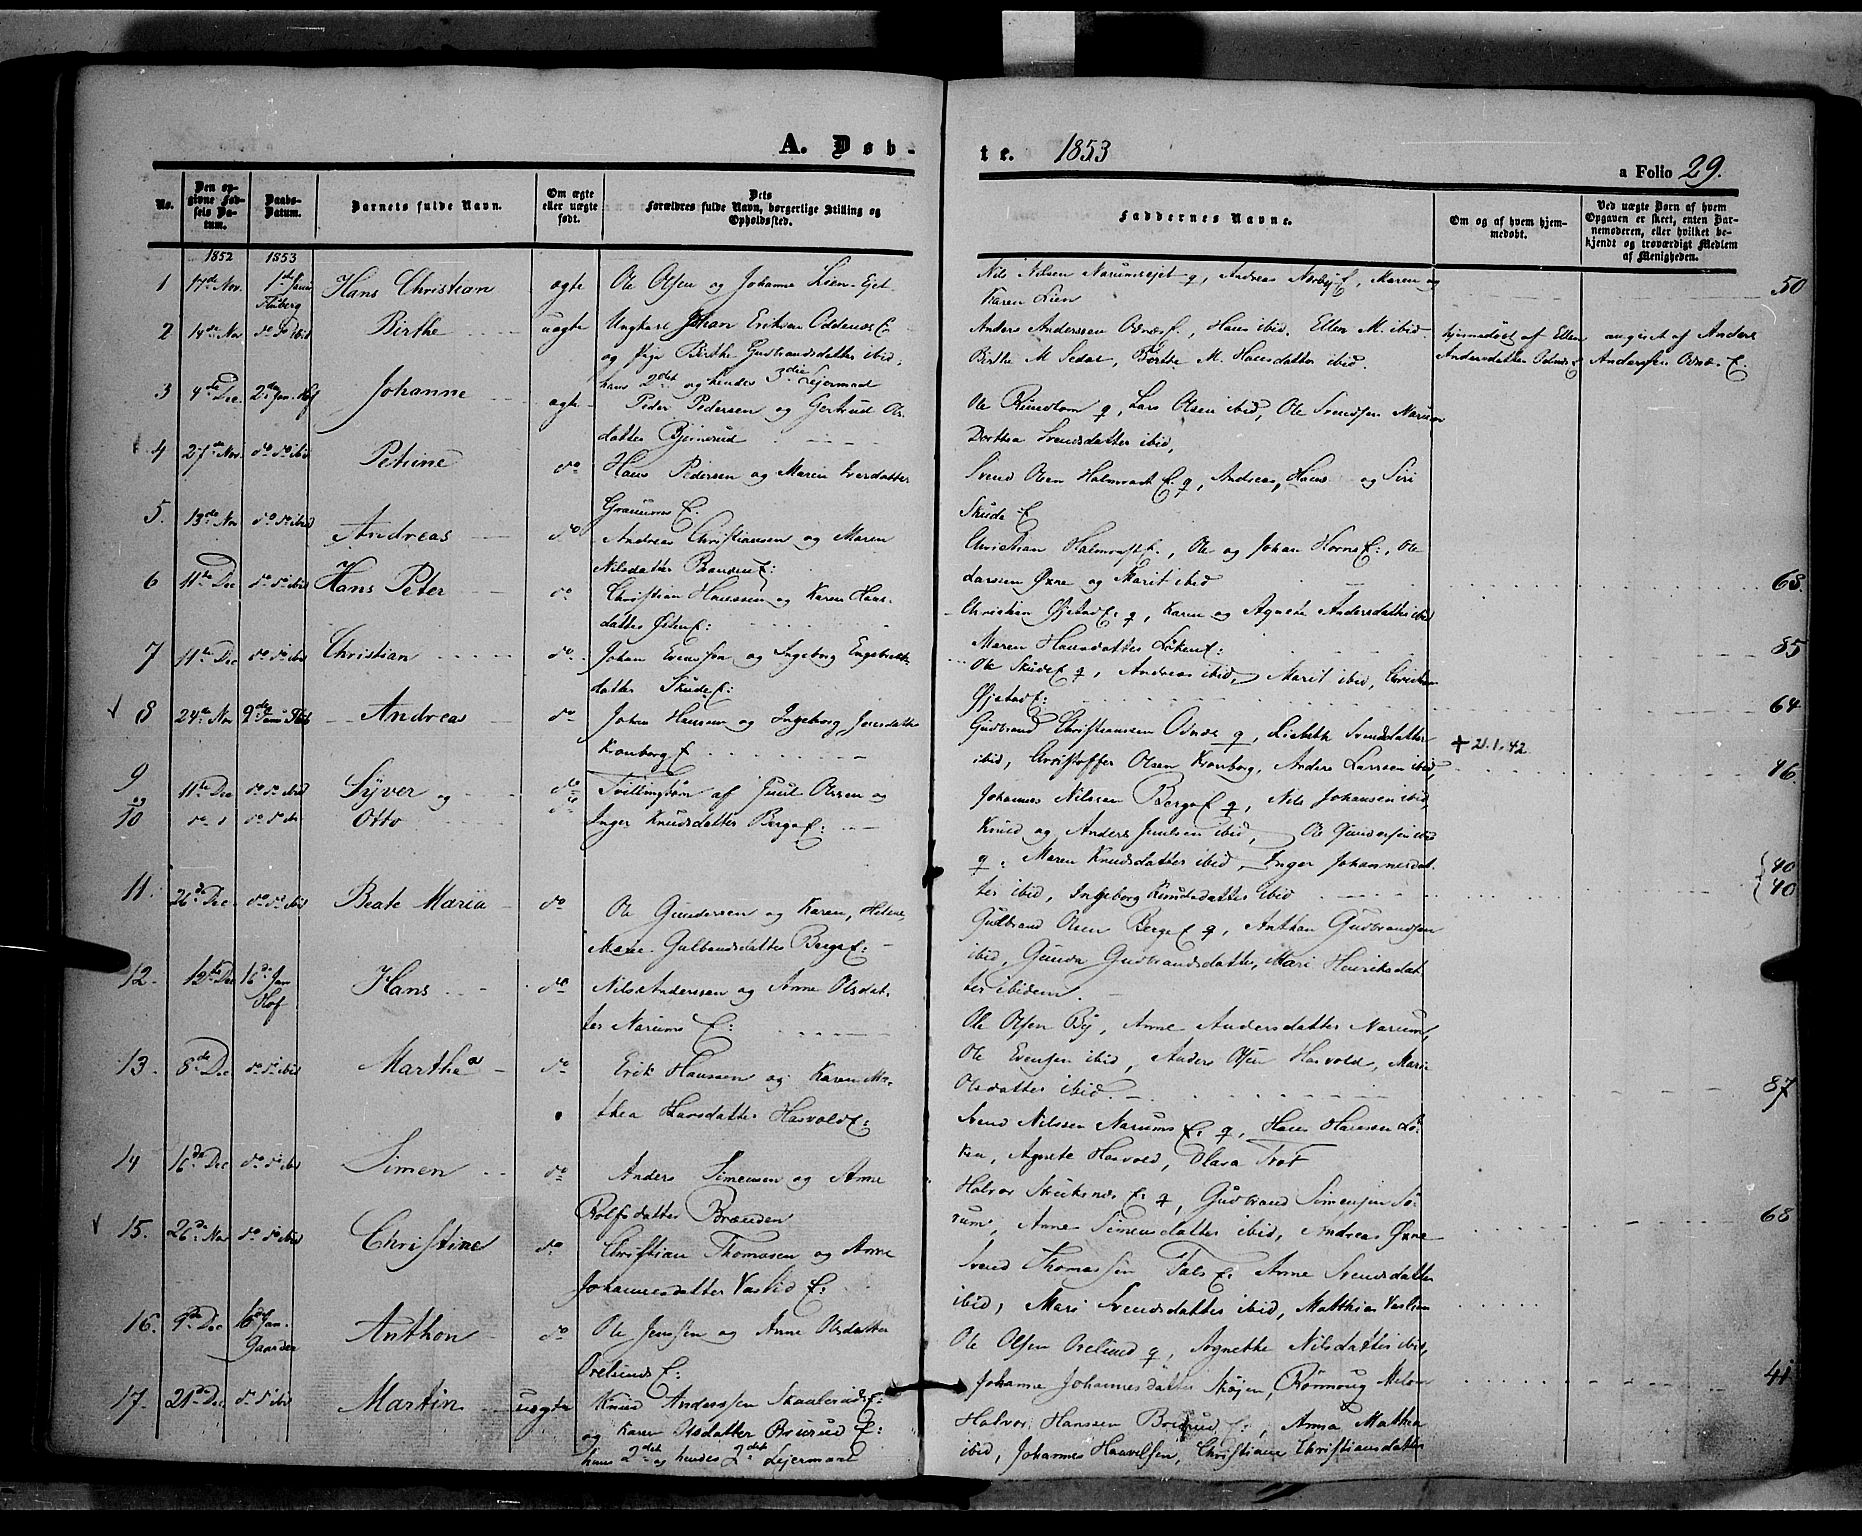 A. Døb-
te. 1853
a Folio 29.
No.
Den opgivne Fødsels Datum.
Daabs-Datum.
Barnets fulde Navn.
Om ægte eller uægte født.
Dets Forældres fulde Navn, borgerlige Stilling og Opholdssted.
Faddernes Navne.
Om og af hvem hjemmedøbt.
Ved uægte Børn af hvem Opgaven er skeet, enten Barnemoderen, eller hvilket bekjendt og troværdigt Medlem af Menigheden.
1852 1853
1 17de Nov. 1ste Janu Fluberg Hans Christian ægte Ole Olsen og Johanne Lien-Ejet
Nils Nilsen Narumsejet q, Andreas Nørby E, Maren og
Karen Lien 50
2 14de Nov do do ibid Birthe uægte Ungkarl Johan Eriksen Odden E.
og Pige Birthe Gudbrandsdatter ibid.
hans 2det og hendes 3die Lejermaal
Anders Anderssen Odnæs E., Hans ibid. Ellen M. ibid.
Birthe M. Sedal, Birthe M. Hansdatter ibid.
hjemmedøbt af Ellen
Andersdatter Odnæs E
angivet af Anders
Andersen Odnæs E.
3 4de Dec. 2den Jan. Hof Johanne ægte Peder Pedersen og Gertrud Ols-
datter Bjørnerud
Ole Rundtom q, Lars Olsen ibid, Ole Svendsen Narum
Dorthea Svendsdatter ibid,
4 27de Nov do do ibid Petrine do Hans Pedersen og Maren Iversdatter
Granum E.
Svend Olsen Halmrast E. q, Andreas, Hans og Siri
Skude E
5. 13de Nov do do ibid Andreas do Andreas Christiansen og Maren
Nilsdatter Branden E:
Christian Halmrast E., Ole og Johan Horns E:, Ole
Larssen Øxne og Marit ibid
6 11te Dec do do ibid Hans Peter do Christian Hanssen og Karen Hans-
datter Østen E: 63.
Christian Øjstad E. q, Karen og Agnete Andersdatter ibid
Maren Hansdatter Løken E:
7 11te Dec do do ibid Christian do. Johan Evenssen og Ingeborg Engebrets-
datter Skude E: 85
Ole Skude E q, Andreas ibid, Marit ibid, Christian
Øjstad E:
8 24de Nov 9de Janu Flub Andreas do Johan Hansen og Ingeborg Jonsdatter
Kronborg E 64
Gudbrand Christiansen Odnæs q, Lisbeth Svendsdatter
ibid, Christoffer Olsen Kronborg, Anders Larssen ibid,
+ 21.1.42.
46.
9 11te Dec do do ibid Syver og do Tvillingbørn af Juul Olssen og
og 10 do do do Otto do Inger Knudsdatter Bergs E:
Johannes Nilssen Bergs E q, Nils Johansen ibid,
Knud og Anders Juulsen ibid, Ole Gundersen ibid
q. Maren Knudsdatter ibid, Inger Johannesdat-
ter ibid, Ingeborg Knudsdatter ibid 40
40
11. 26de Dec do do ibid Beate Maria do Ole Gundersen og Karen, Helene,
Marie Gulbrandsdatter Bergs E:
Gudbrand Olsen Bergs E q, Anthon Gudbrandsen
ibid, Gunda Gudbrandsdatter, Mari Henriksdat-
ter ibidem.
12. 12te Dec 16de Jan Hof Hans do Nils Anderssen og Anne Olsdat-
ter Narums E:
Ole Olsen By, Anne Andersdatter Narum,
Ole Evensen ibid, Anders Olsen Hasvold, Mari
Olsdatter ibid. 87
13. 8de Dec do do ibid Marthea do Erik Hanssen og Karen Ma-
thea Larsdatter Hasvold E:
Svend Nilssen Narums E. q, Hans Hanssen Lø-
ken, Agnete Hasvold, Clara Trot
14 16de Dec do do ibid Simen do Anders Simensen og Anne
Rolfsdatter Brænden
Halvor Skriksnæs E. q, Gudbrand Simensen Sø-
rum, Anne Simensdatter ibid, Andreas Øxne 68
15. 26de Nov do do ibid Christine do Christian Thomasen og Anne
Johannesdatter Vaslid E:
Svend Thomassen Fals E. Anne Svendsdatter
ibid, Mari Svendsdatter ibid, Matthias Vaslien
16. 9de Dec 16de Jan. Gaarder Anthon do Ole Jenssen og Anne Olsdatter
Orelunds E:
Ole Olsen Orelund q, Agnethe Nilsdatter ibid,
Johanne Johannesdatter Skøjen, Rønnoug 41
17. 21de Dec do do ibid Martin uægte Knud Anderssen Skaalerud E:
og Karen Olsdatter Brurud E:
hans 2det og hendes 2det Lejermaal
Halvor Hanssen Brurud E:, Anna Mathea
ibid, Johannes Haavelsen, Christiane Christiansdatter